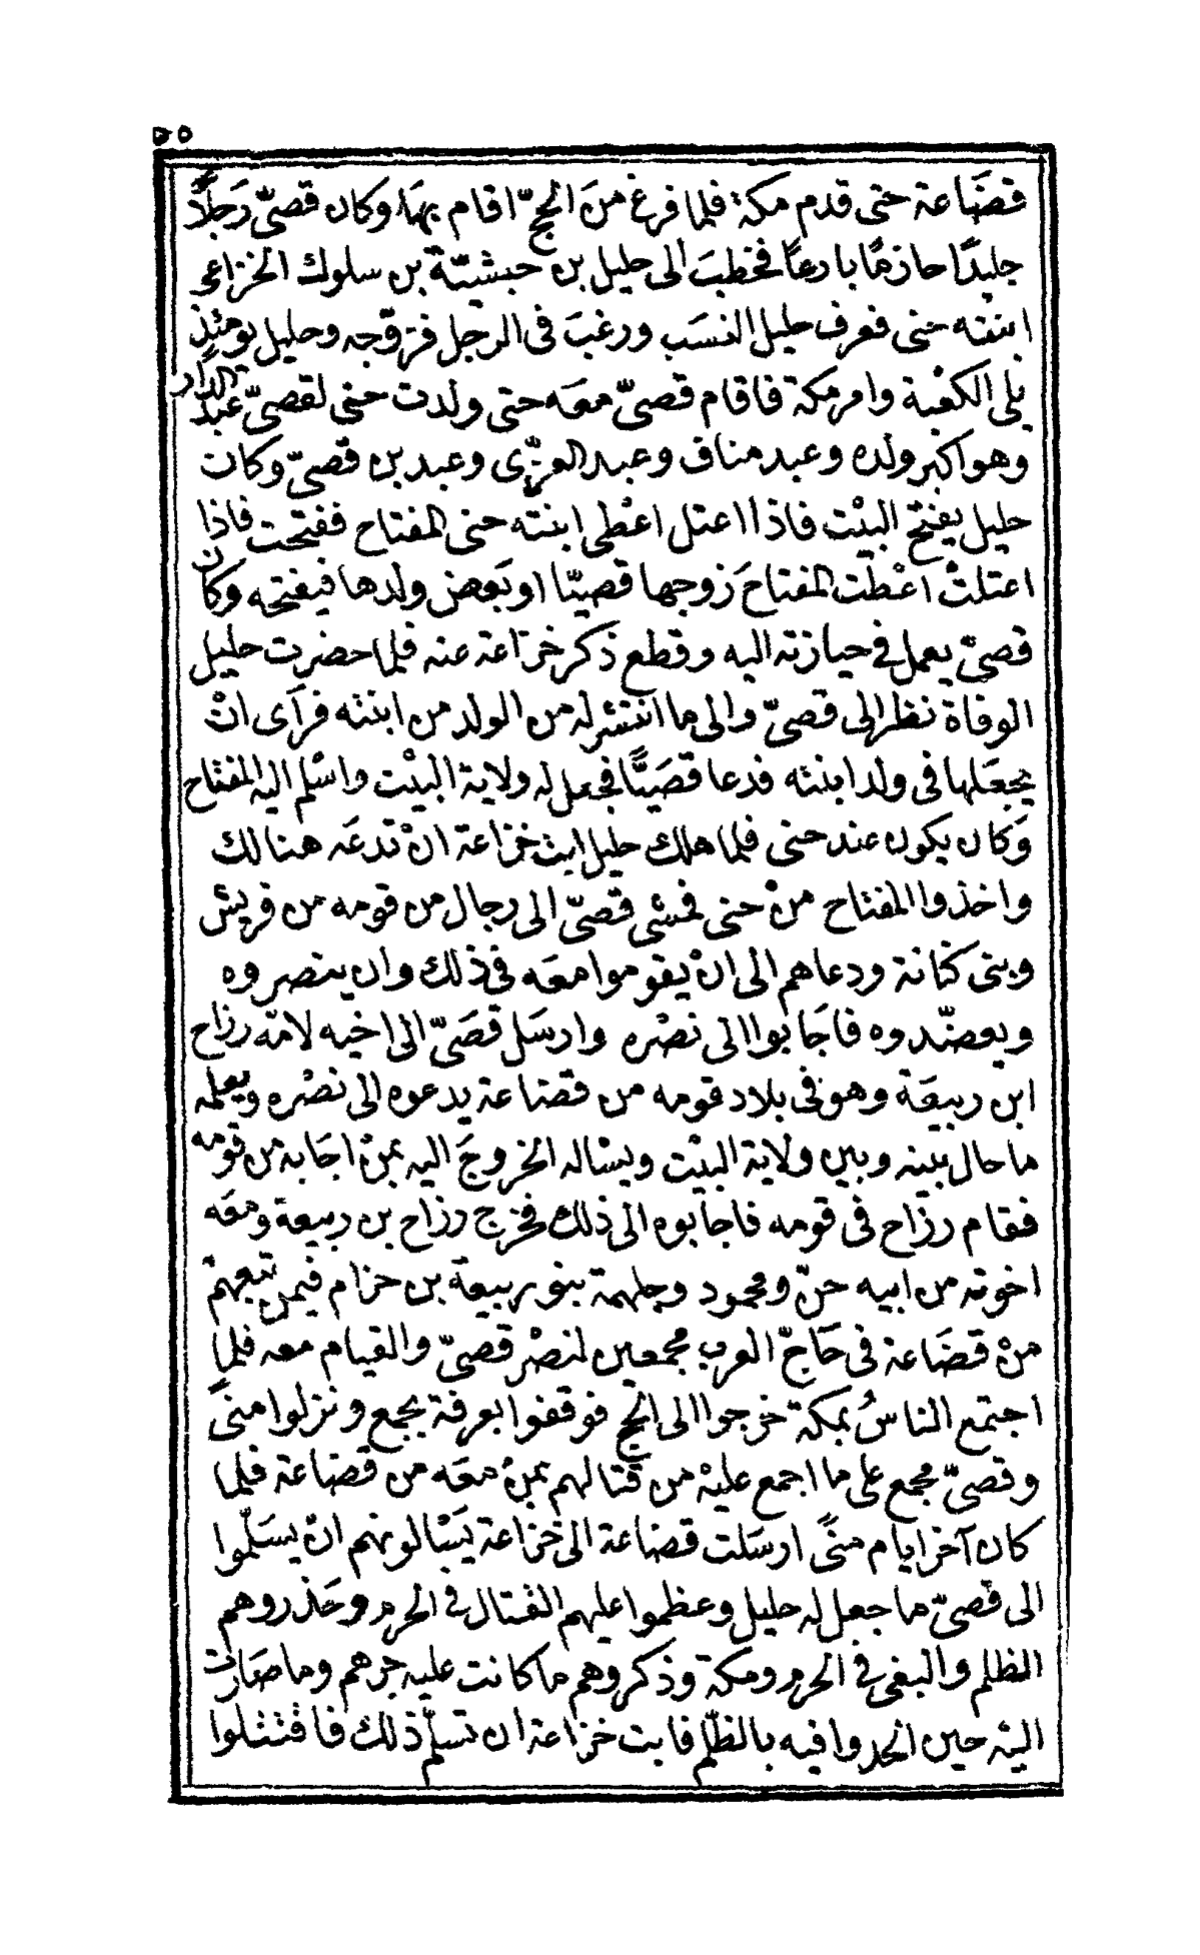 ٥٥
قضَاعة حتى قدم مكة فلما فرغ منَ الحجّ اقام بهَا وكان قصىّ رَجلاً
جليدًا حازمًا بارعًا فخطبَ الى حليل بن حبشيّة بن سلوك الخزاعى
ابنته حبى فعرف حليل النسَب ورغبَ فى الرجل فزوّجه وحليل يومئذٍ
يلى الكعْبة وامر مكة فاقام قصىّ معَه حتى ولدت حبى لقصىّ عبد الدار
وهو اكبر ولده وعبد مناف وعبد العزّى وعبد بن قصىّ وكان
حليل يفتح البيْت فاذا اعتل اعْطى ابنته حبى المفتاح ففتحت فاذا
اعتلتْ اعْطت المفتاحَ زوجها قصيّا او بَعض ولدها فيفتحه وكان
قصىّ يعمل فى حيازته اليه وقطع ذكر خزاعة عنه فلما حضرت حليل
الوفاة نظر الى قصىّ والى ما انتشر له من الولد من ابنته فرآى انْ
يجعَلها فى ولد ابنته فدعا قصَيًّا فجعل له ولاية البيْت واسْلم اليه المفتاح
وَكان يكون عند حبى فلما هلك حليل ابت خزاعة انْ تدعَه هنالك
واخذوا المفتاح منْ حبى فمشى قصىّ الى رجال من قومه من قريش
وبنى كنانة ودعاهم الى انْ يقوموا معَه فى ذلك وان ينصروه
ويعضّدوه فاجَابوا الى نصْره وارسَل قصَىّ الى اخيه لامّه رزاح
ابن ربيعَة وهو فى بلاد قومه من قضاعة يدعوه الى نصْره ويعلمه
ما حال بينه وبين ولاية البيْت ويسْاله الخروجَ اليه بمنْ اجَابه من قومه
فقام رزاح فى قومه فاجابوه الى ذلك فخرج رزاح بن ربيعة ومعَه
اخوته من ابيه حنّ ومحمود وجلهمة بنو ربيعة بن حزام فيمن تبعهمْ
منْ قضَاعة فى حَاجّ العرب مجمعين لنصْر قصىّ والقيام معه فلما
اجتمع الناسُ بمكة خرجوا الى الحج فوقفوا بعرفة بجمع ونزلوا منىً
وقصىّ مجمع على ما اجمع عليْه من قتالهم بمنْ معَه من قضاعة فلما
كان آخر ايام منىً ارسَلت قضاعة الى خزاعة يَسْالونهم انْ يسَلّموا
الى قصىّ ما جعل له حليل وعظموا عليهم القتال فى الحرم وحَذروهم
الظلم والبغى فى الحرم ومكة وذكروهم ما كانت عليه جرهم وما صَارت
اليْه حين الحدوا فيه بالظلْم فابت خزاعة ان تسلّم ذلك فاقتتلوا